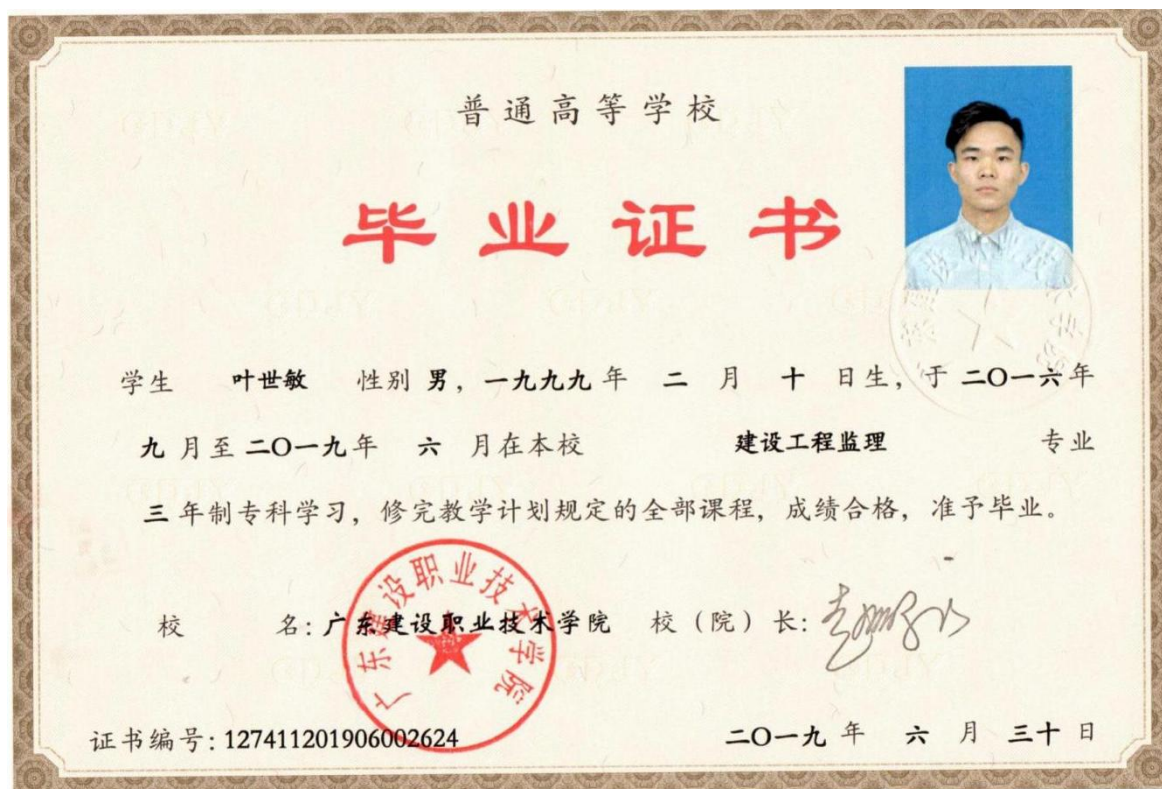 普通高等学校
毕业证书
学生 叶世敏 性别 男，一九九九 年 二 月 十 日生，于 二〇一六年
九 月至 二〇一九年 六 月在本校 建设工程监理 专业
三 年制专科学习，修完教学计划规定的全部课程，成绩合格，准予毕业。
校 名：广东建设职业技术学院 校（院）长：
广东建设职业技术学院
证书编号：127411201906002624 二〇一九 年 六 月 三十 日